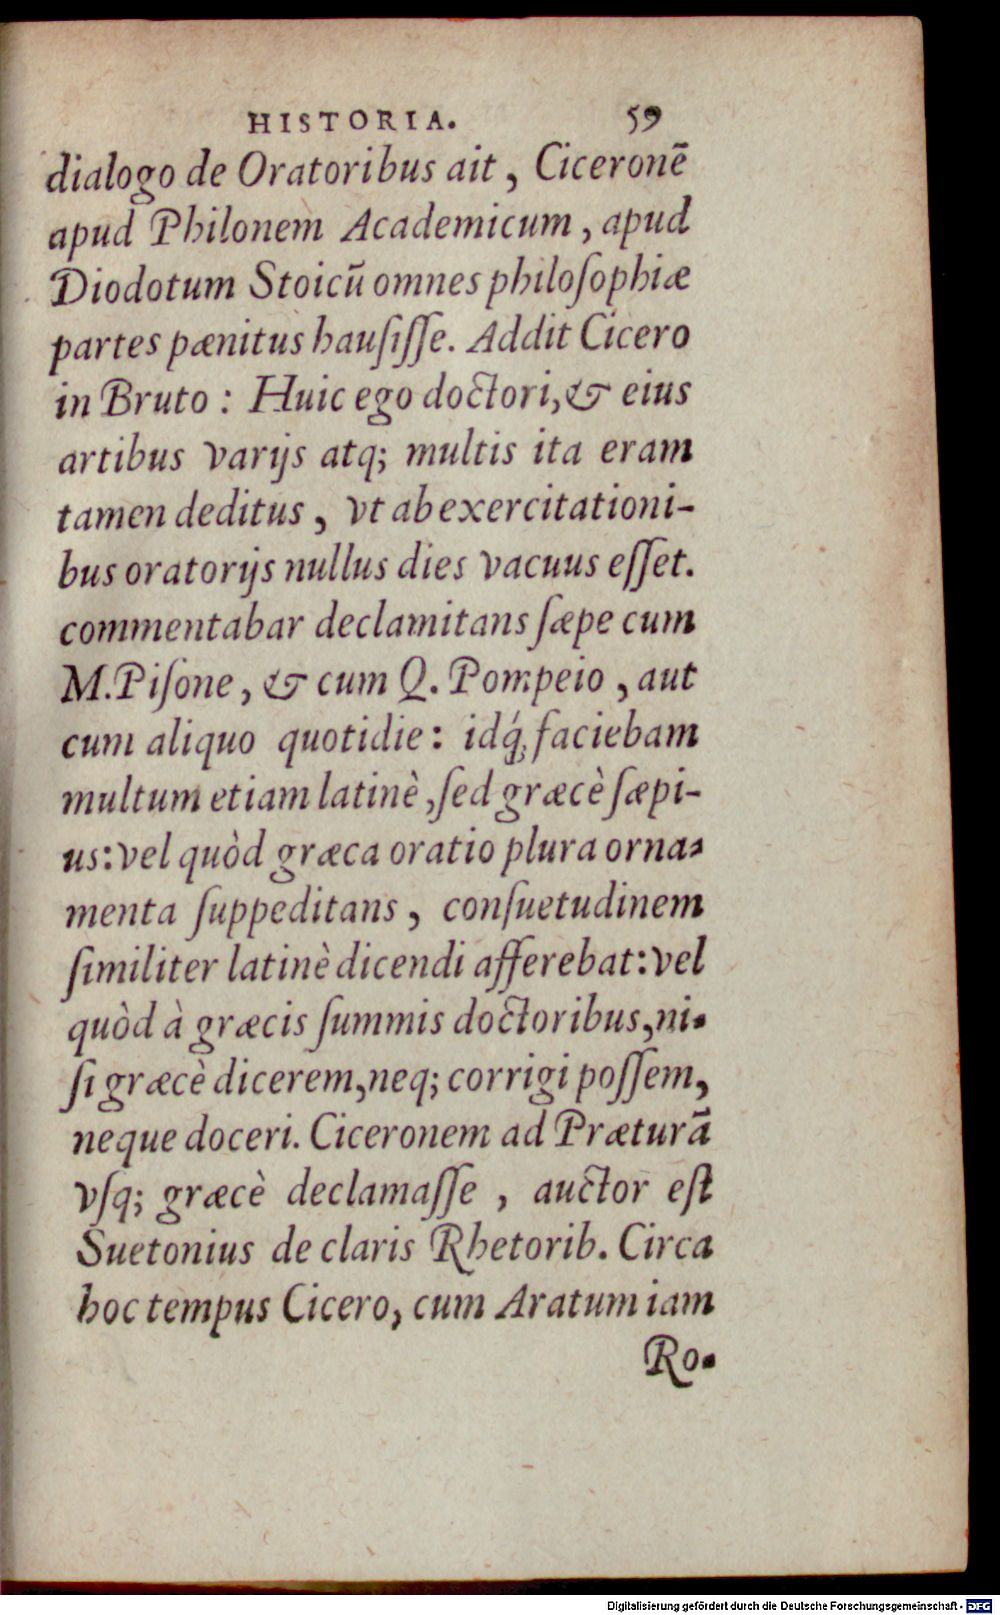 HISTORIA. 59
dialogo de Oratoribus ait, Ciceronē
apud Philonem Academicum, apud
Diodotum Stoicū omnes philoſophiæ
partes pænitus hauſiſſe. Addit Cicero
in Bruto: Huic ego doctori, & eius
artibus varijs atq; multis ita eram
tamen deditus, vt ab exercitationi-
bus oratorijs nullus dies vacuus eſſet.
commentabar declamitans ſæpe cum
M. Piſone, & cum Q. Pompeio, aut
cum aliquo quotidie: idq́; faciebam
multum etiam latinè, ſed græcè ſæpi-
us: vel quòd græca oratio plura orna-
menta ſuppeditans, conſuetudinem
ſimiliter latinè dicendi afferebat: vel
quòd à græcis ſummis doctoribus, ni-
ſi græcè dicerem, neq; corrigi poſſem,
neque doceri. Ciceronem ad Præturā
vſq; græcè declamaſſe, auctor eſt
Suetonius de claris Rhetorib. Circa
hoc tempus Cicero, cum Aratum iam
Ro-
Digitalisierung gefördert durch die Deutsche Forschungsgemeinschaft - DFG